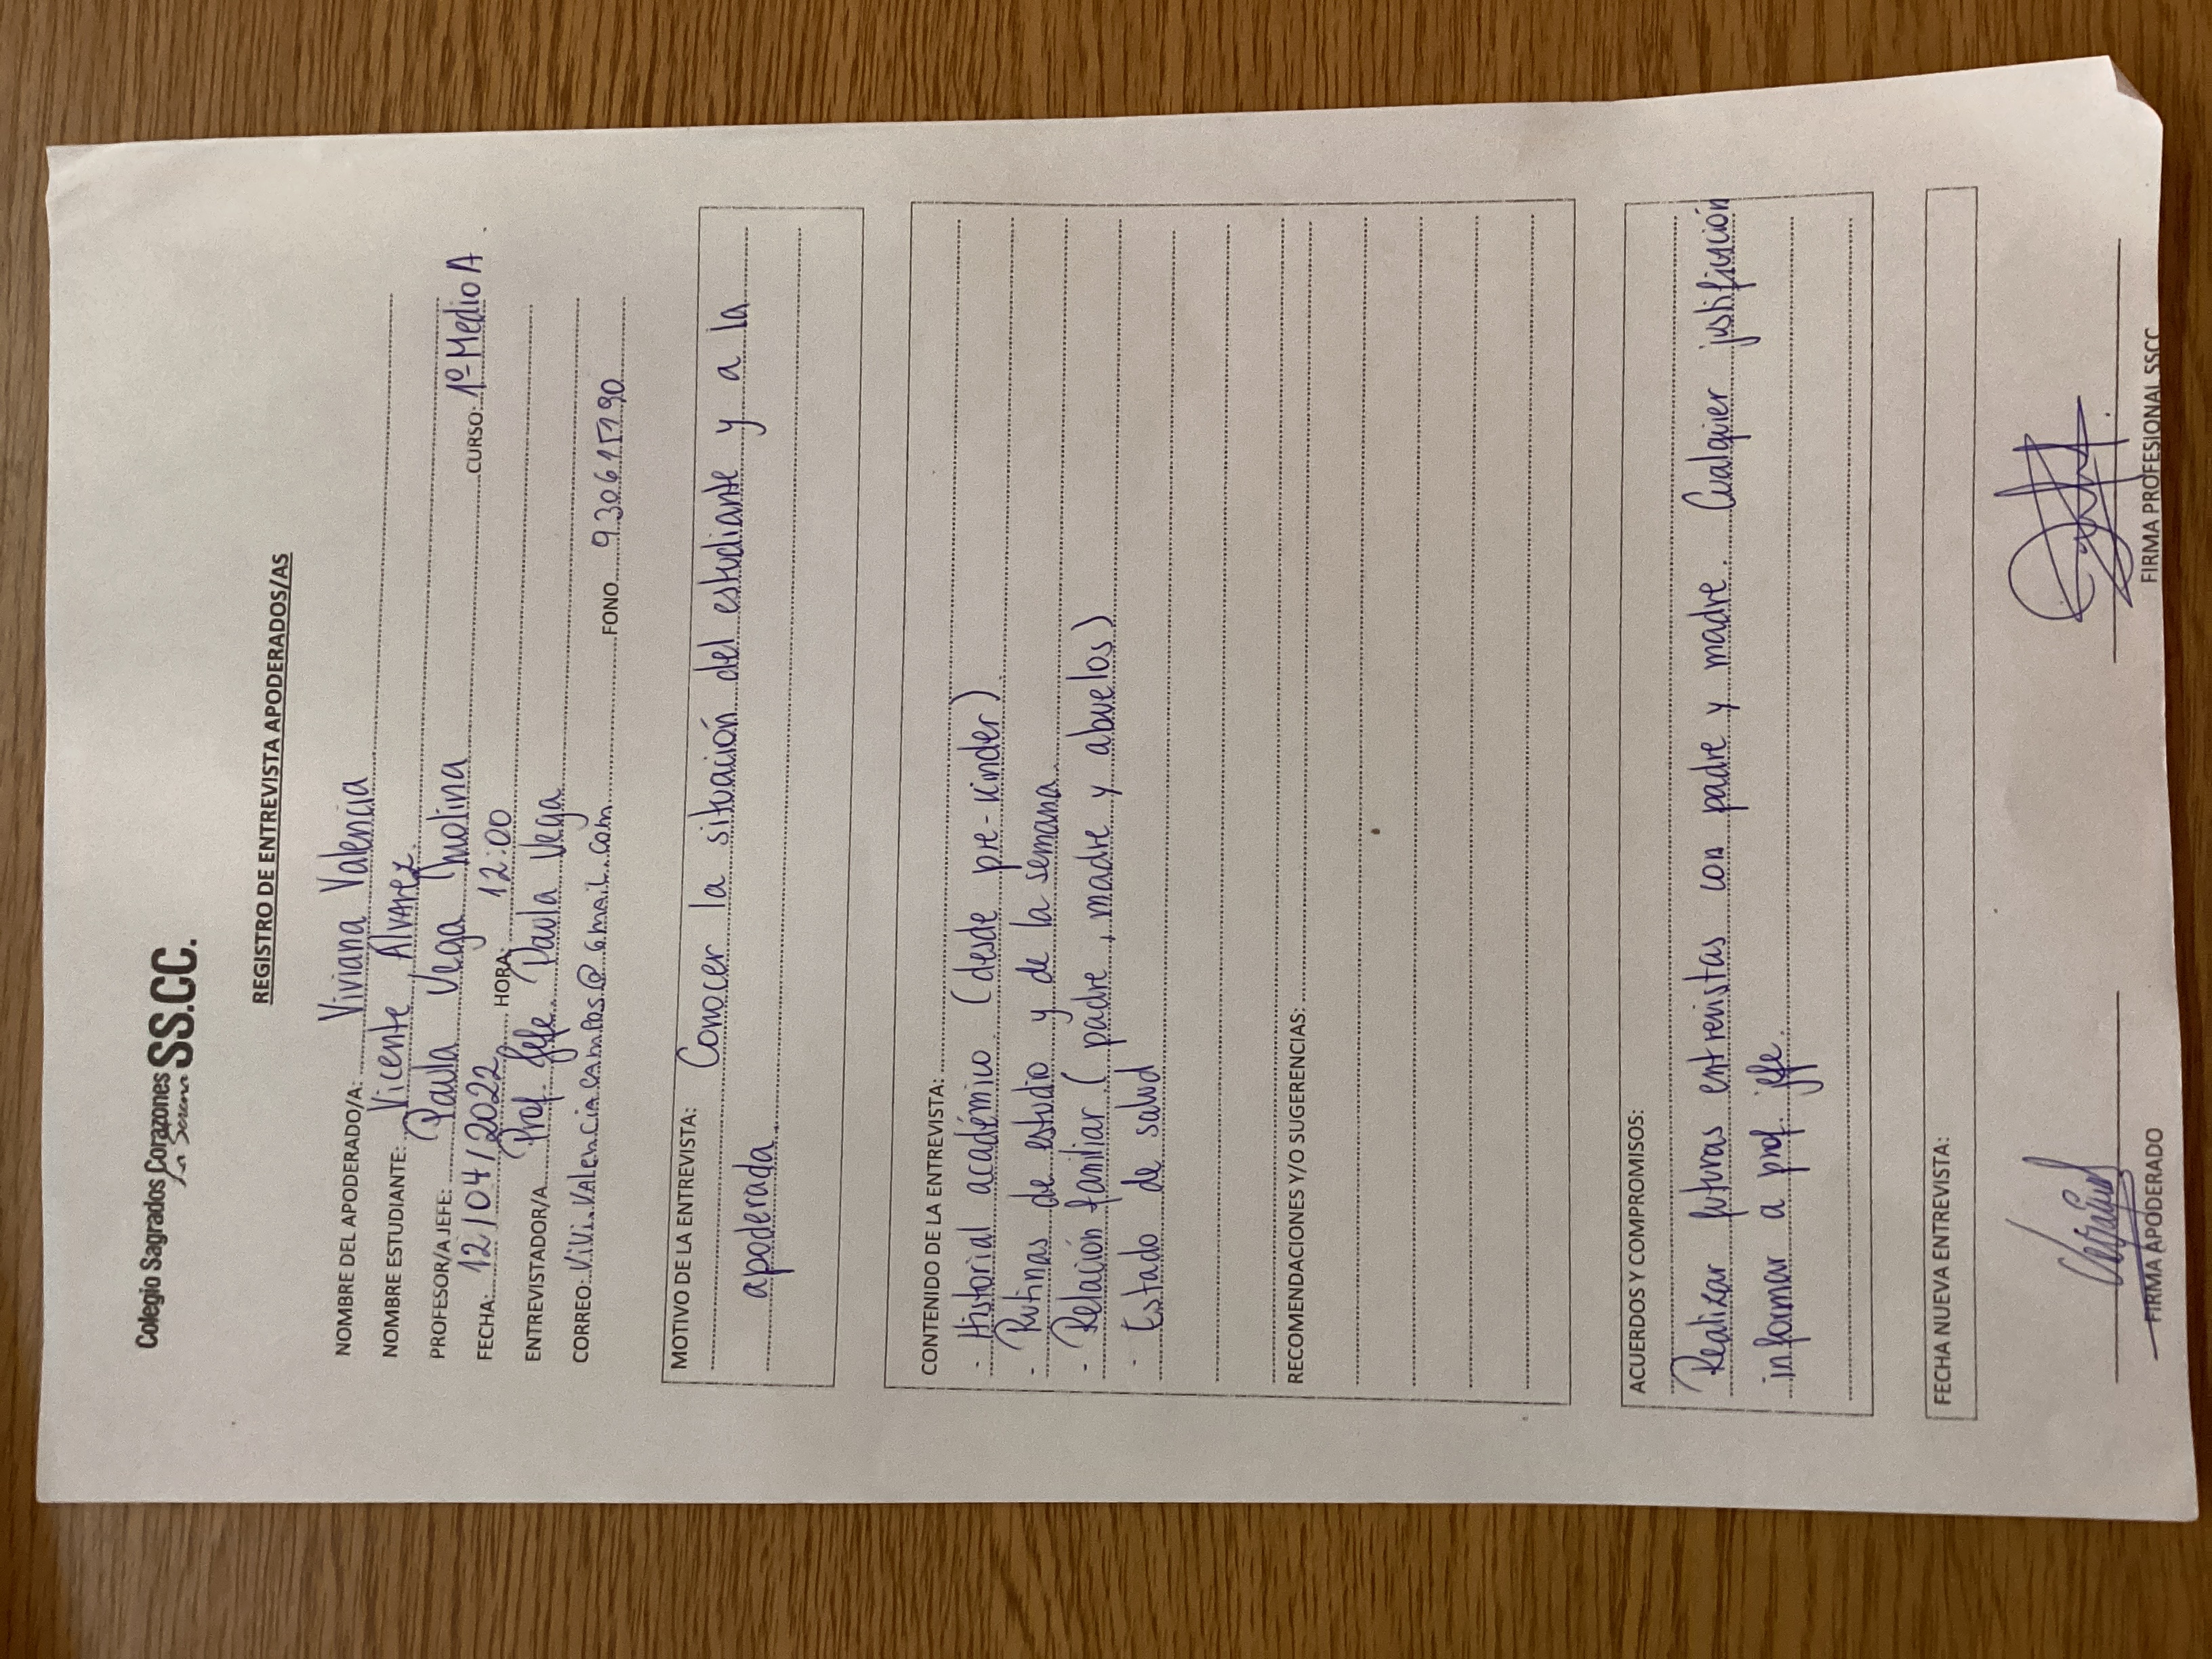 Colegio Sagrados Corazones SS.CC.
La Serena
REGISTRO DE ENTREVISTA APODERADOS/AS
NOMBRE DEL APODERADO/A: Viviana Valencia
NOMBRE ESTUDIANTE: Vicente Alvarez.
PROFESOR/A JEFE: Paula Vega Molina
FECHA: 12/04/2022 HORA: 12:00 CURSO: 1º Medio A
ENTREVISTADOR/A Prof. Jefe Paula Vega
CORREO: Vivi.Valencia.campos@gmail.com FONO 930615790
MOTIVO DE LA ENTREVISTA: Conocer la situación del estudiante y a la
apoderada.
CONTENIDO DE LA ENTREVISTA:
- Historial académico (desde pre-kinder)
- Rutinas de estudio y de la semana
- Relación familiar ( padre, madre y abuelos)
- Estado de salud
RECOMENDACIONES Y/O SUGERENCIAS:
ACUERDOS Y COMPROMISOS:
Realizar futuras entrevistas con padre y madre. Cualquier justificación
informar a prof. jefe.
FECHA NUEVA ENTREVISTA:
FIRMA APODERADO FIRMA PROFESIONAL SSCC